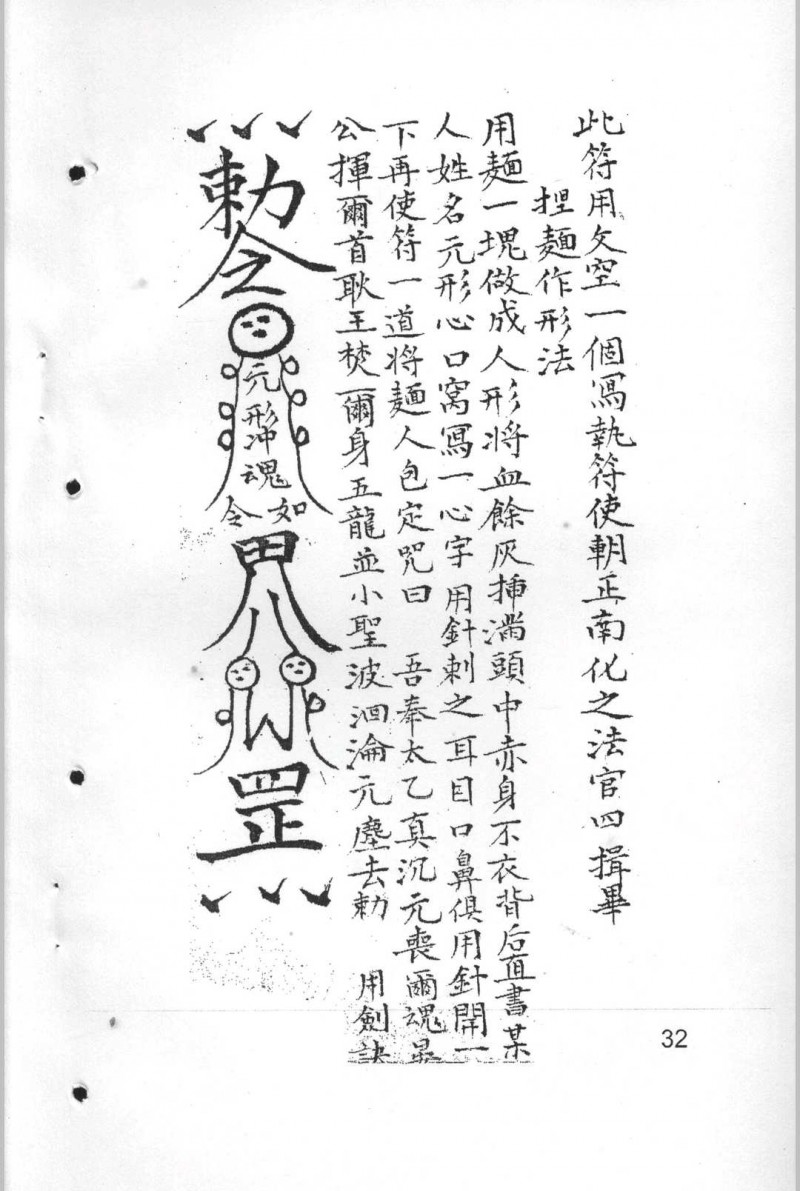 此符用文空一個寫執符使朝正南化之法官四揖畢
揑麵作形法
用麵一塊做成人形将血餘灰揷滿頭中赤身不衣背后直書某
人姓名元形心口窩寫一心字用針刺之耳目口鼻俱用針開一
下再使符一道将麵人包定咒曰 吾奉太乙真沉元喪爾魂畀
公揮爾首耿王焚爾身五龍並小聖波洄淪元塵去勅 用劍訣
勅令
元形冲魂
如令
田八
罡
32